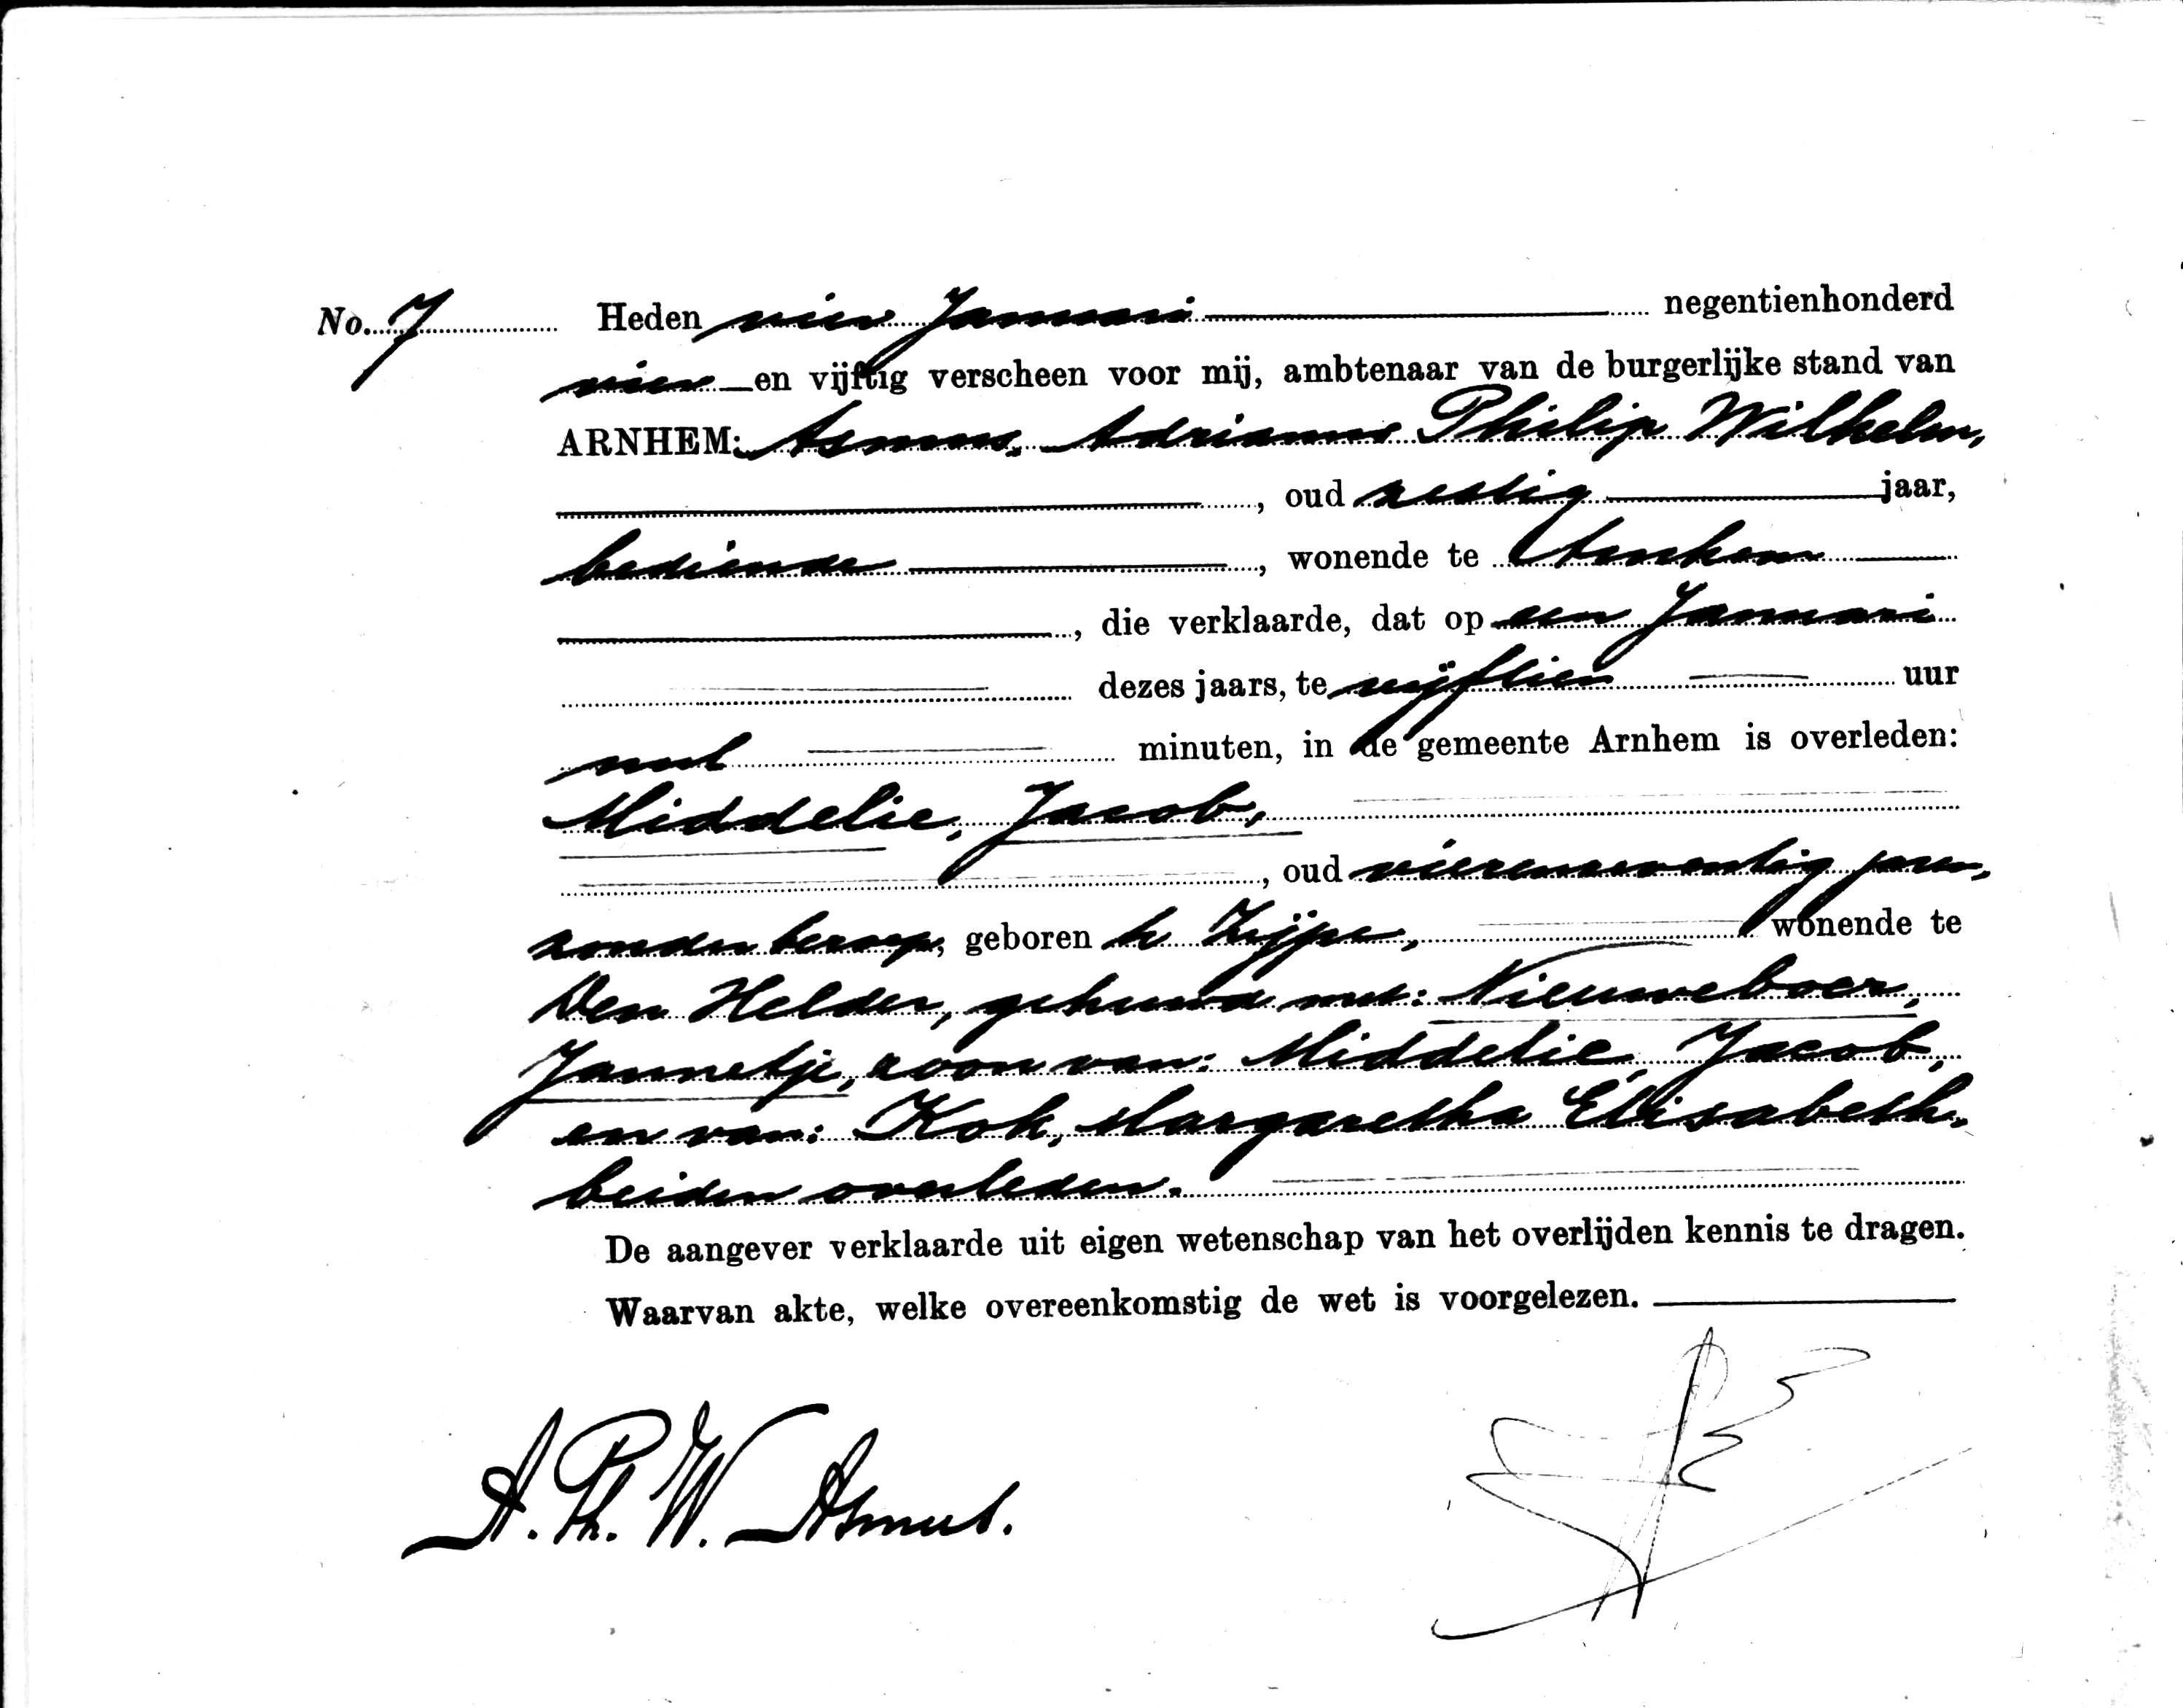 No. 7 Heden vier Januari negentienhonderd
vier en vijftig verscheen voor mij, ambtenaar van de burgerlijke stand van
ARNHEM: Asmus, Adrianus Philip Wilhelm,
, oud zestig jaar,
bediende, wonende te Arnhem
, die verklaarde, dat op een Januari
dezes jaars, te vijftien uur
nul minuten, in de gemeente Arnhem is overleden:
Middelie, Jacob,
, oud vierenzeventig jaar,
zonder beroep, geboren te Zijpe, wonende te
Den Helder, gehuwd met: Nieuweboer,
Jannetje, zoon van: Middelie, Jacob,
en van: Kok, Margaretha Elisabeth,
beiden overleden.
De aangever verklaarde uit eigen wetenschap van het overlijden kennis te dragen.
Waarvan akte, welke overeenkomstig de wet is voorgelezen.
A. Ph. W. Asmus.